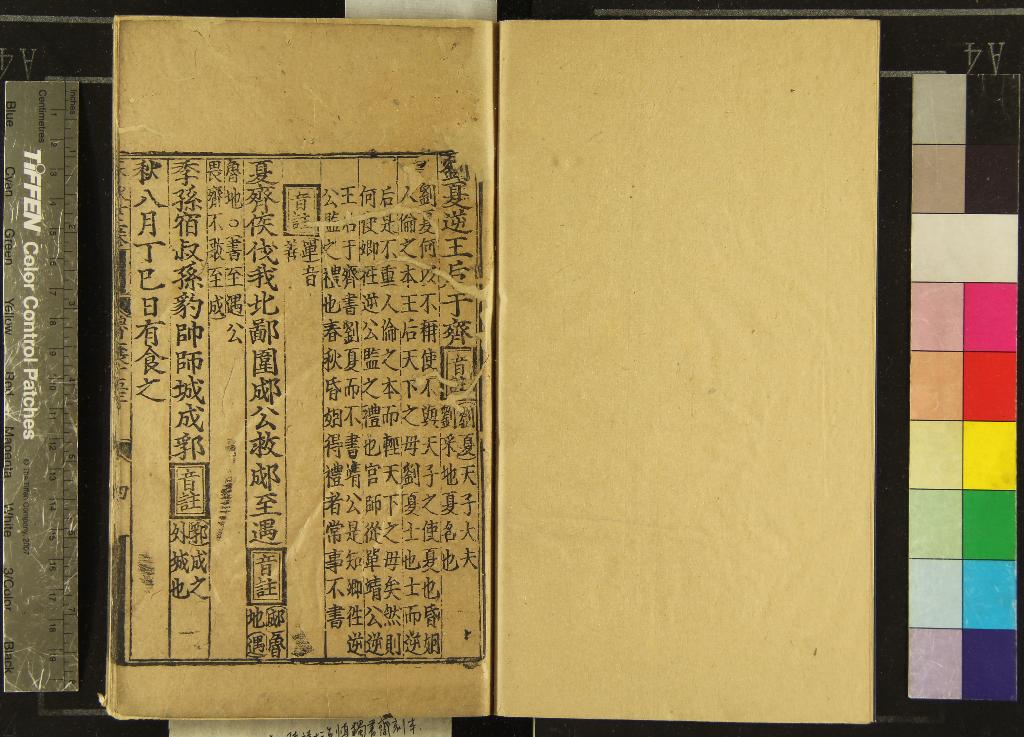 劉夏逆王后于齊 音註 劉夏天子大夫
劉采地夏名也
劉夏何以不稱使不與天子之使夏也昏姻
人倫之本王后天下之母劉夏士也士而逆
后是不重人倫之本而輕天下之母矣然則
何使卿往逆公監之禮也官師從單靖公逆
王后于齊書劉夏而不書靖公是知卿往逆
公監之禮也春秋昏姻得禮者常事不書
音註 單音
善
夏齊侯伐我北鄙圍成公救成至遇 音註 郕魯
地遇
魯地○書至遇公
畏齊不敢至成
季孫宿叔孫豹帥師城成郛 音註 郛成之
外城也
秋八月丁巳日有食之
四
Inches
Centimetres
TIFFEN Color Control Patches
© The Tiffen Company, 2007
Blue
Cyan
Green
Yellow
Red
Magenta
White
3/Color
Black
A4
A4